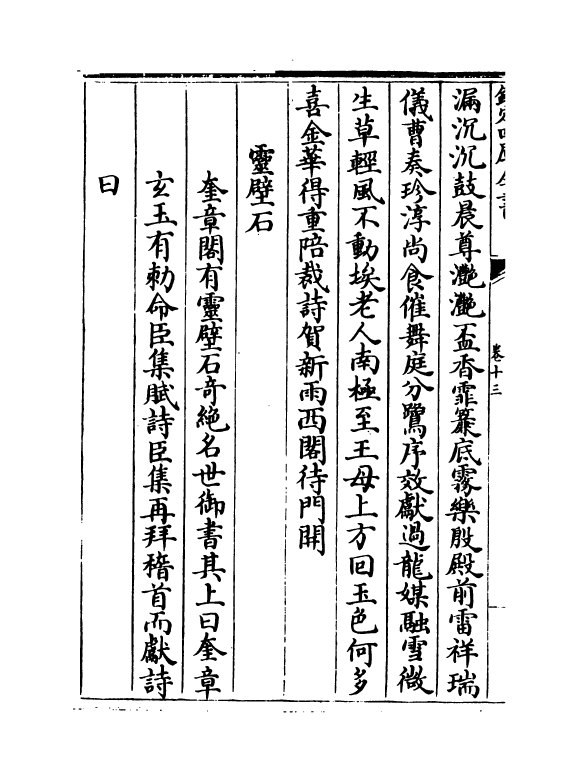 欽定四庫全書
卷十三
漏沉沉鼓晨尊灔灔盃香霏簾底霧樂殷殿前雷祥瑞
儀曹奏珍淳尚食催舞庭分鷺序效獻過龍媒融雪微
生草輕風不動埃老人南極至王母上方回玉色何多
喜金華得重陪裁詩賀新雨西閣待門開
靈壁石
奎章閣有靈壁石奇絶名世御書其上曰奎章
玄玉有勅命臣集賦詩臣集再拜稽首而獻詩
曰